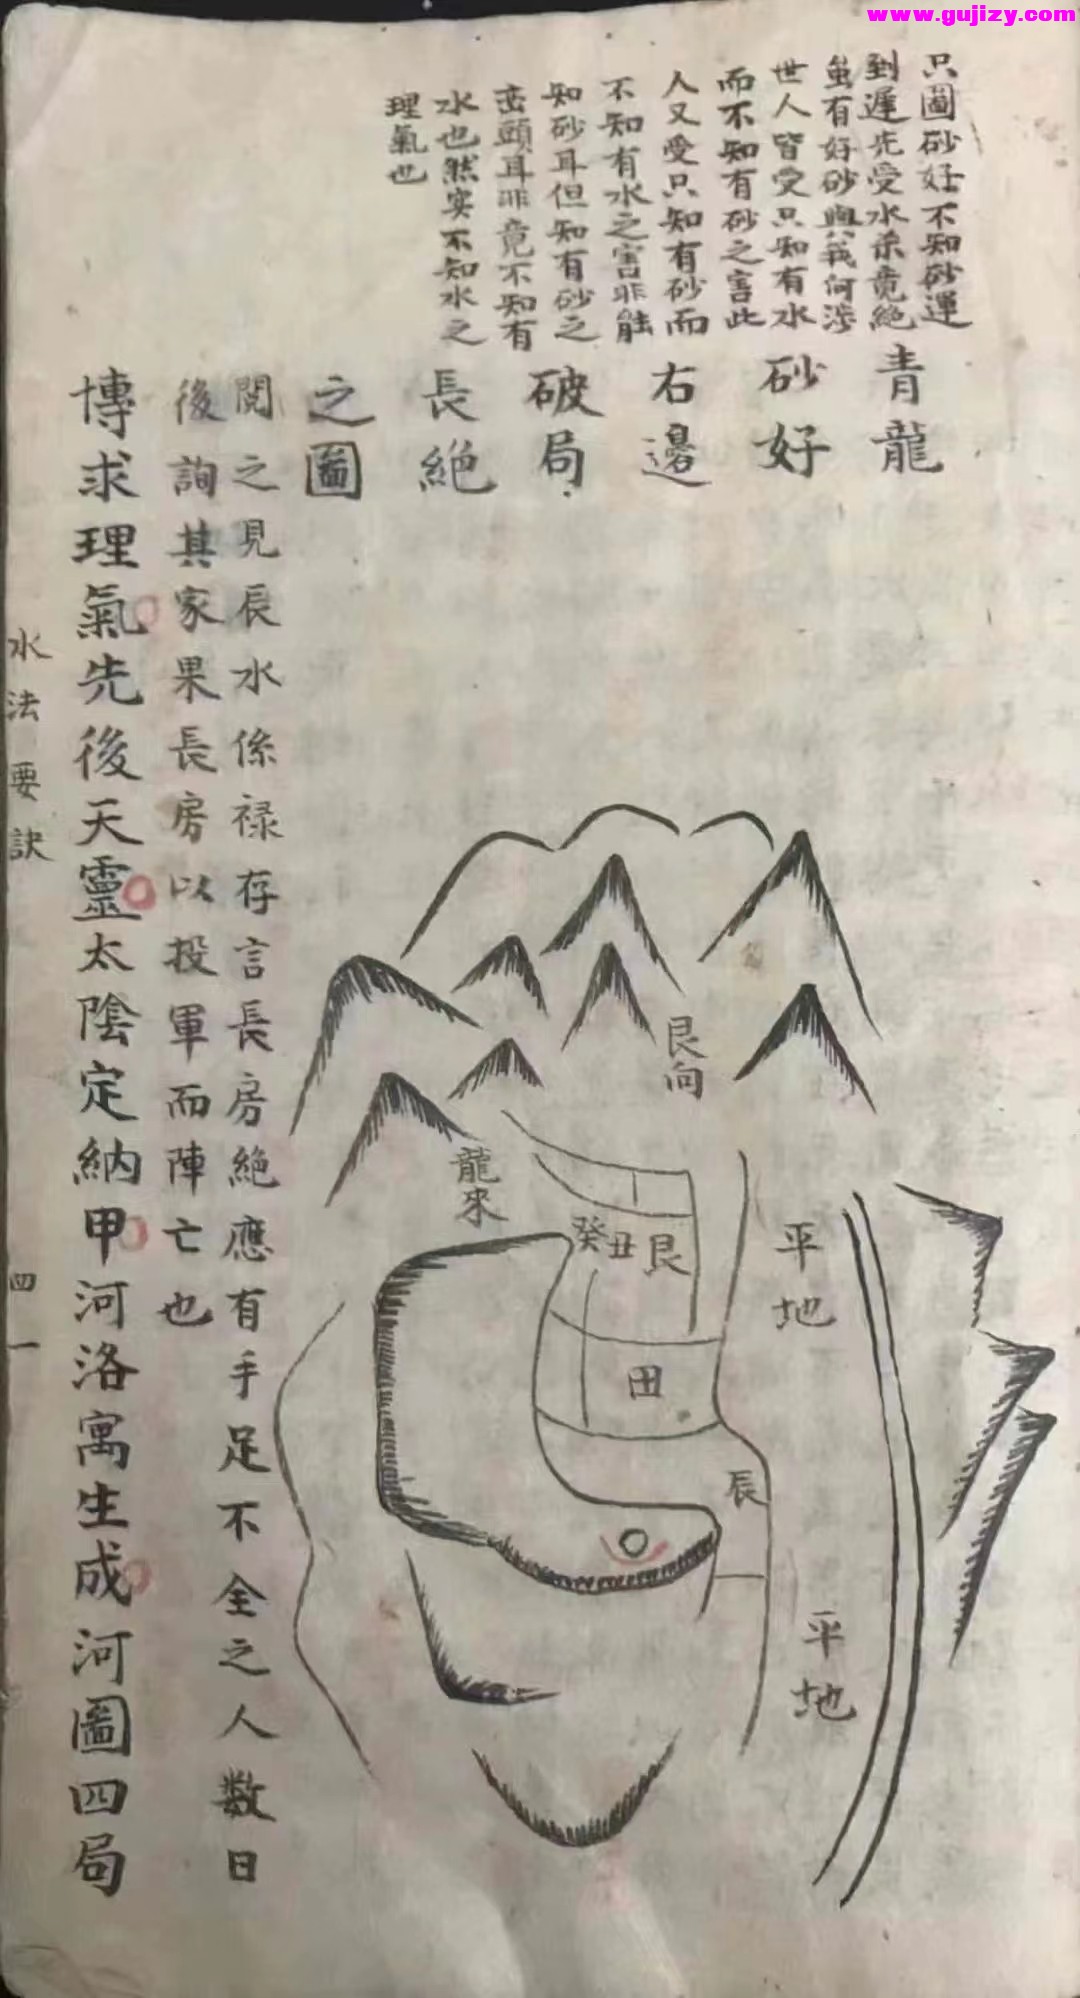 www.gujizy.com
只圖砂好不知砂運
到遲先受水杀竟絕
虽有好砂與我何涉
世人皆受只知有水
而不知有砂之害此
人又受只知有砂而
不知有水之害非能
知砂耳但知有砂之
巒頭耳非竟不知有
水也然实不知水之
理氣也
青龍
砂好
右邊
破局
長絕
之圖
閱之見辰水係禄存言長房絕應有手足不全之人数日
後詢其家果長房以投軍而陣亡也
博求理氣先後天靈太陰定納甲河洛寓生成河圖四局
水法要訣
四一
艮向
龍來
癸丑艮
平地
田
辰
平地